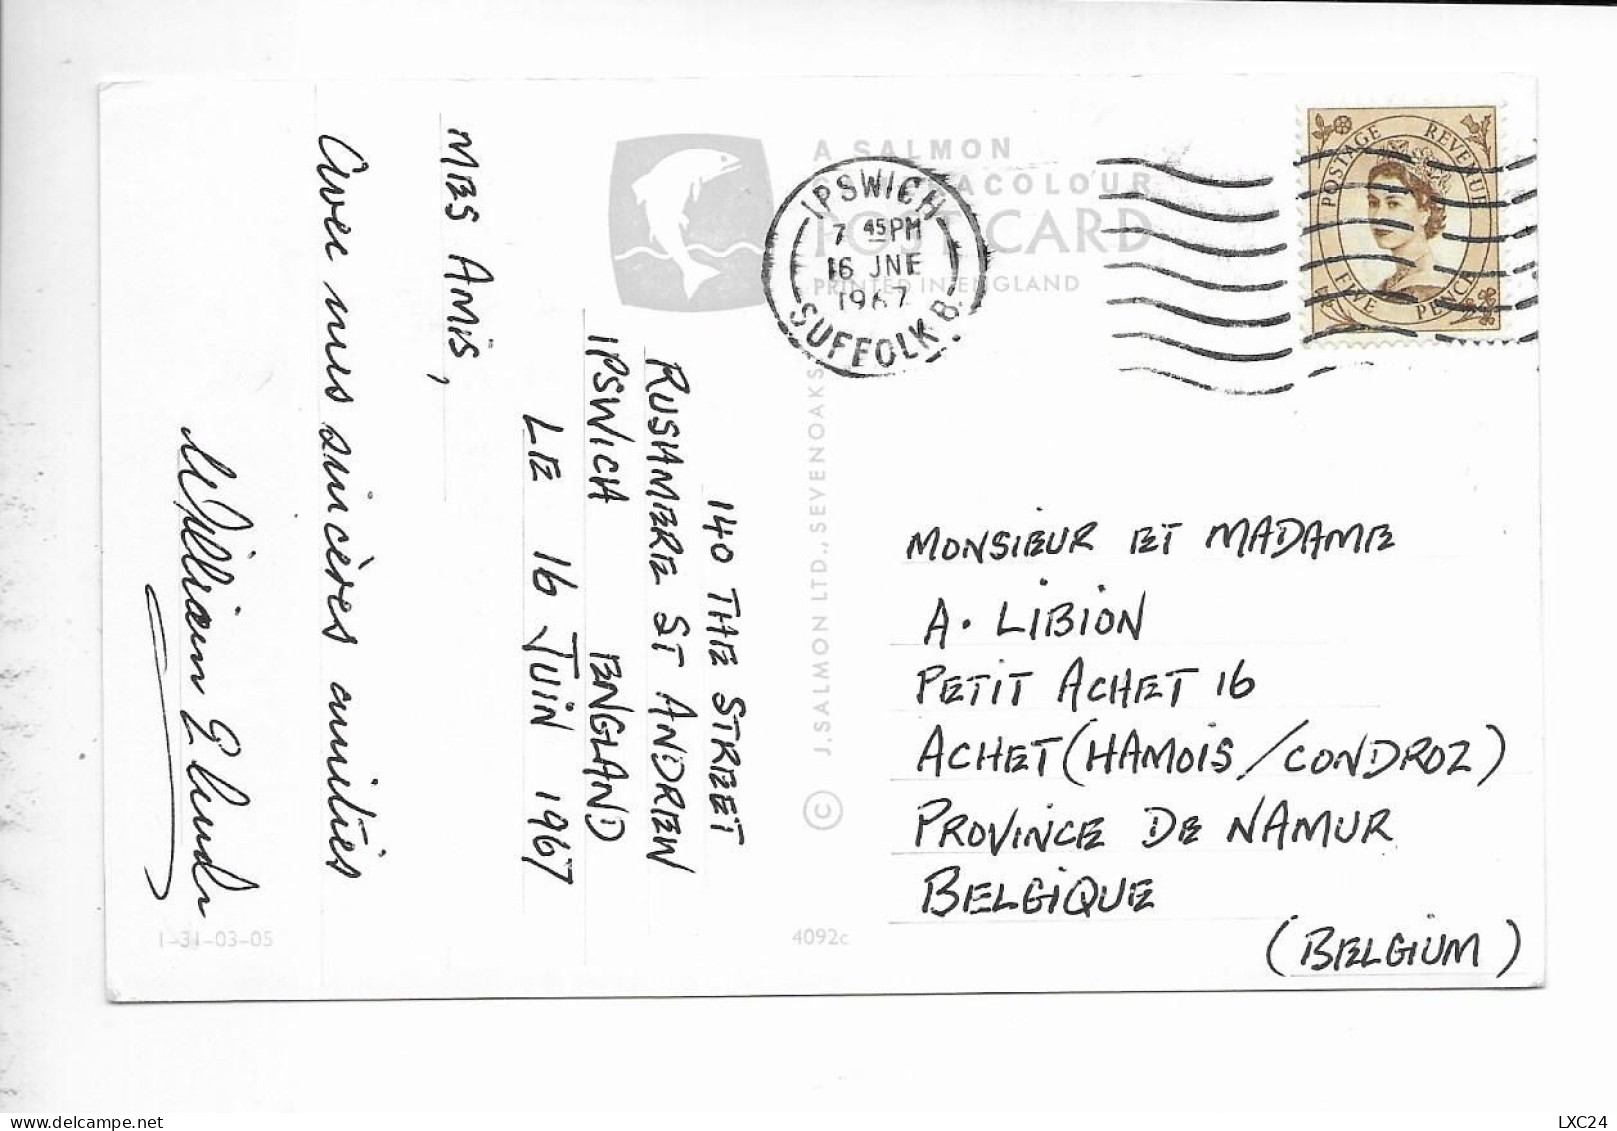 140 THE STREET
RUSHMERE ST ANDREW
IPSWICH ENGLAND
LE 16 JUIN 1967
MES AMIS,
Avec mes sincères amitiés
William E
1-31-03-05
A SALMON
ACOLOUR
POSTCARD
PRINTED IN ENGLAND
© J. SALMON LTD., SEVENOAKS
4092c
IPSWICH
7 45 PM
16 JNE
1967
SUFFOLK B.
POSTAGE REVENUE
FIVE PENCE
MONSIEUR ET MADAME
A. LIBION
PETIT ACHET 16
ACHET (HAMOIS/CONDROZ)
PROVINCE DE NAMUR
BELGIQUE
(BELGIUM)
LXC24